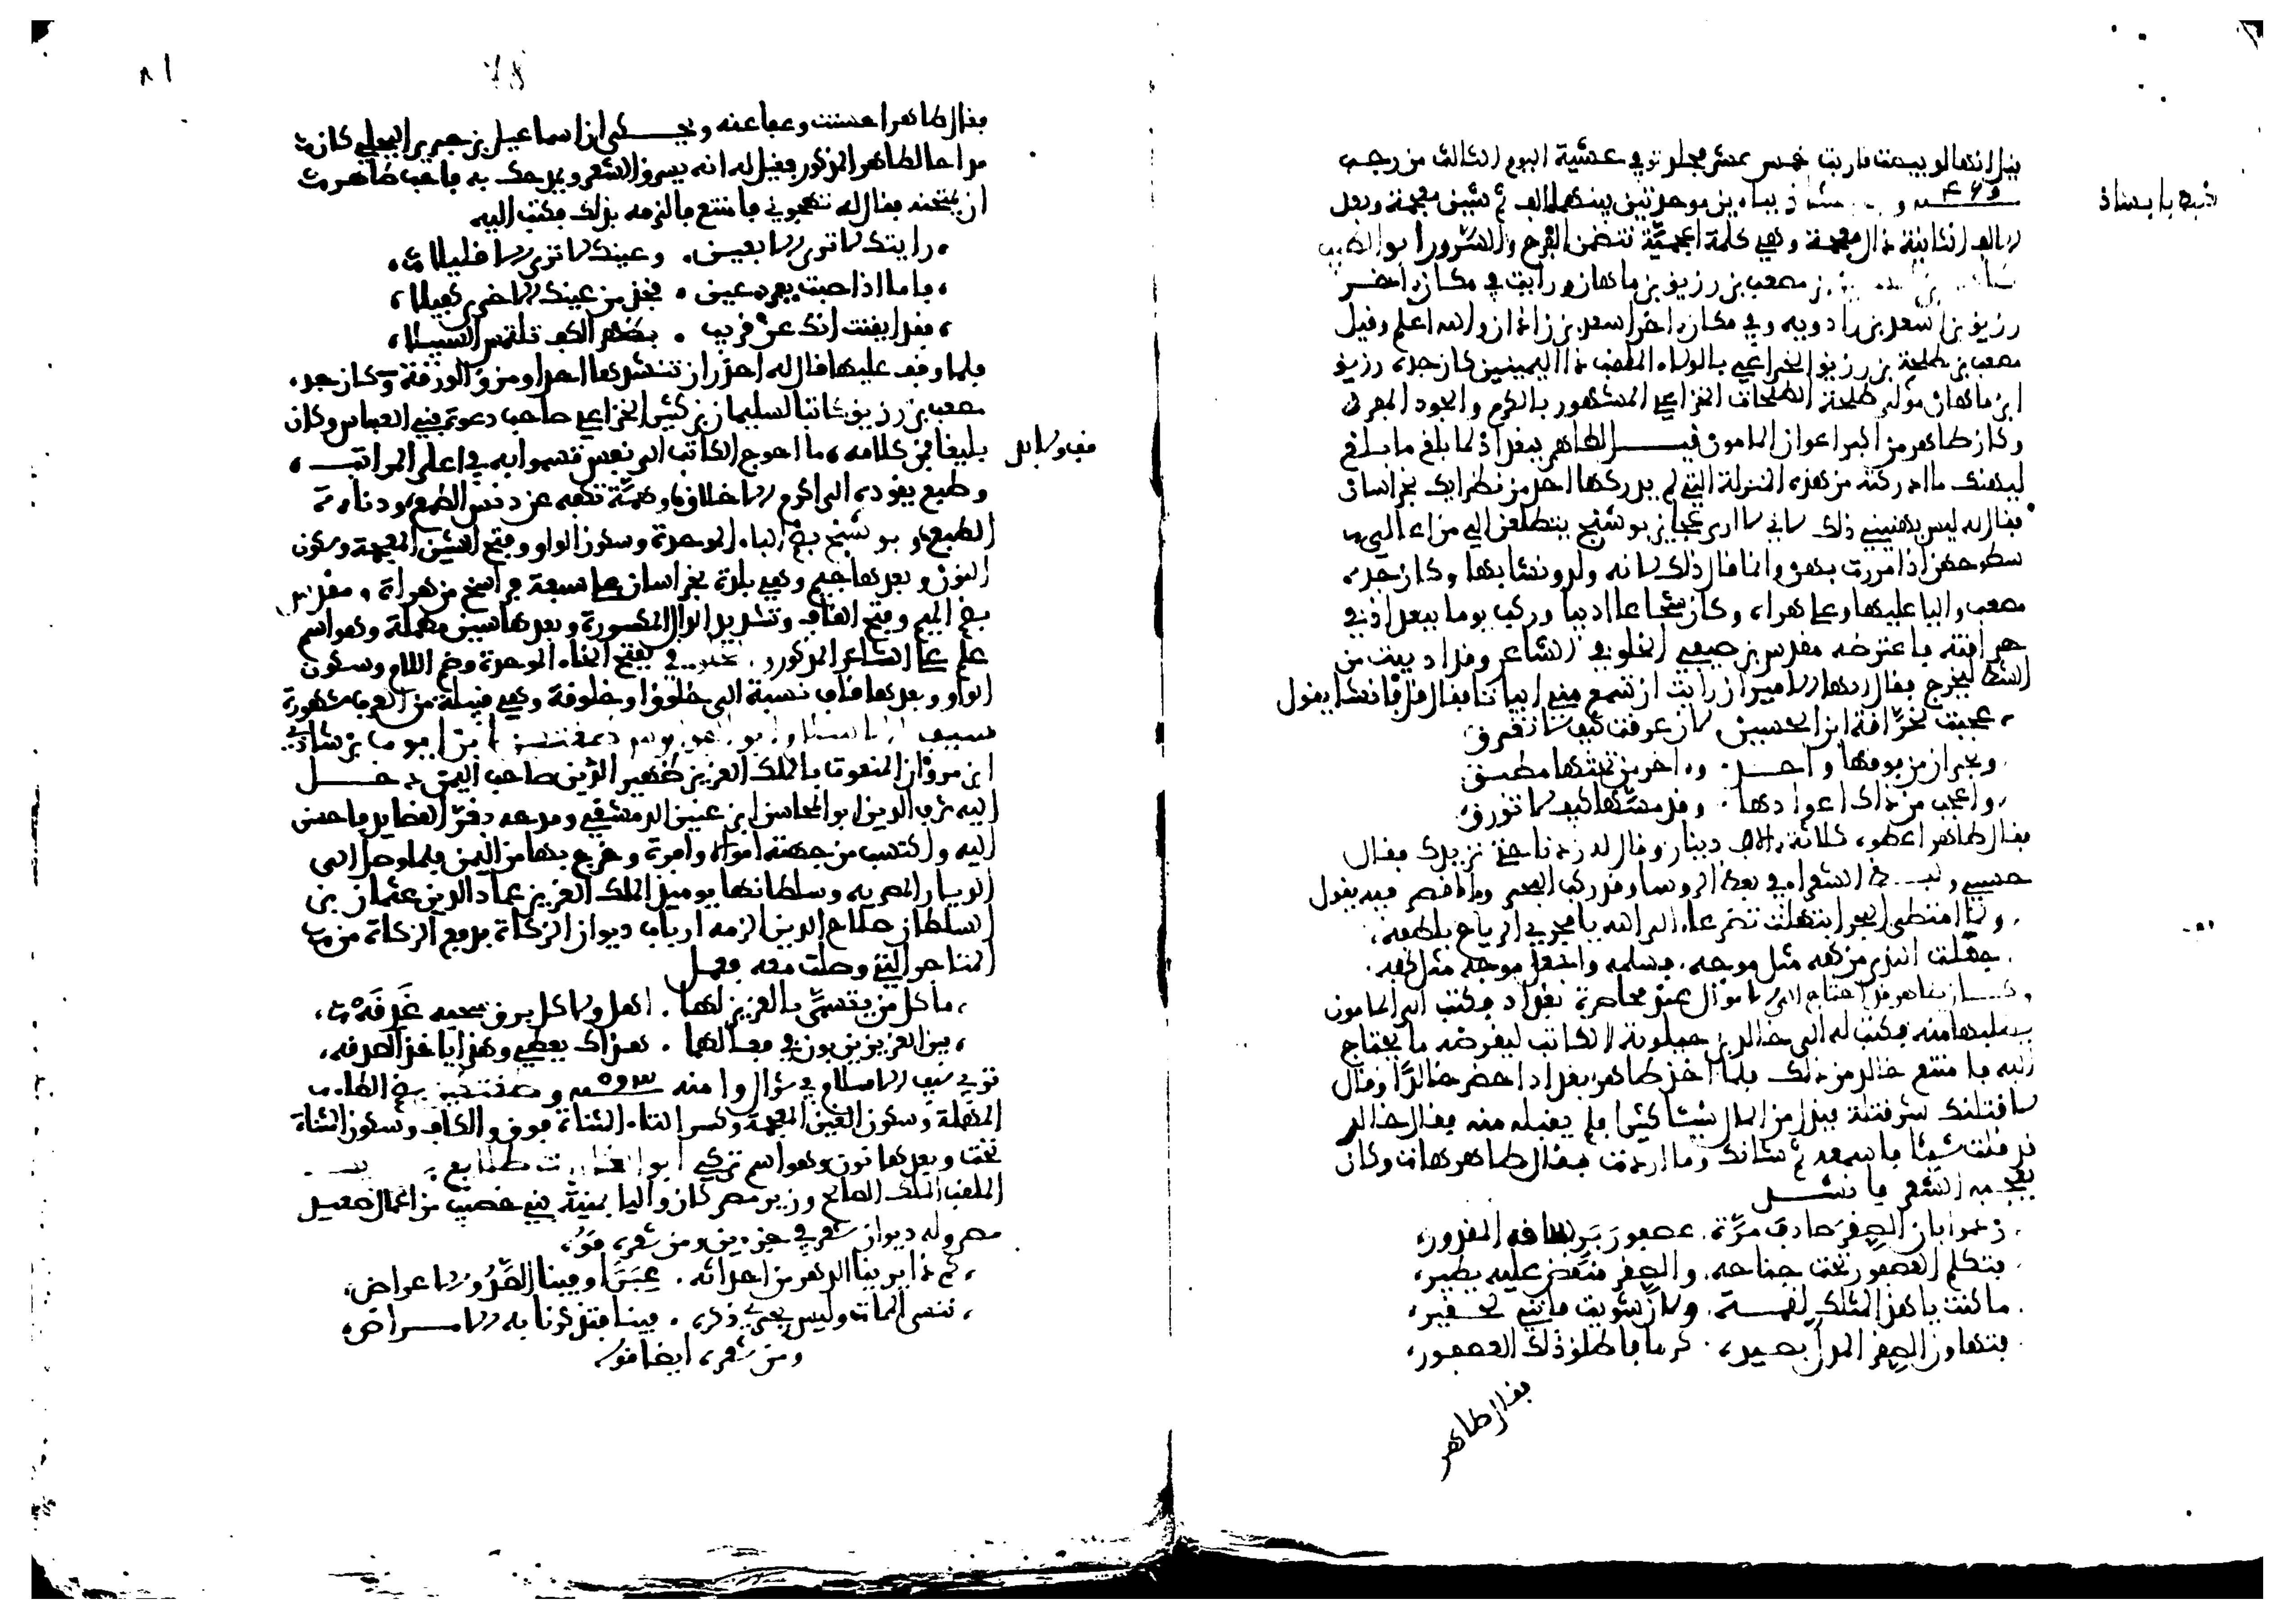 فقال انها لو بيعت قاربت خمس عشر مجلد توفي عشية اليوم الثالث من رجب
سنة ٤٦٩ و بباءين موحدتين بينهما الف ثم شين معجمة وبعد
الالف الثانية ذال معجمة وهي كلمة اعجمية تتضمن الفرح والسرور ابو الطيب
بن مصعب بن رزيق بن ماهان ورايت في مكان اخر
رزيق بن اسعد بن رادويه وفي مكان اخر اسعد بن زاذان والله اعلم وقيل
مصعب بن طلحة بن رزيق الخزاعي بالولاء الملقب ذا اليمينين كان جده رزيق
ابن ماهان مولى طلحة الطلحات الخزاعي المشهور بالكرم والجود المفرط
وكان طاهر من اكبر اعوان المامون قيل لطاهر ببغداد لما بلغ ما بلغ
ليهنك ما ادركته من هذه المنزلة التي لم يدركها احد من نظرايك بخراسان
فقال له ليس يهنيني ذلك لاني لا ارى عجايز بوشنج يتطلعن الي من اعالي
سطوحهن اذا مررت بهن وانما قال ذلك لانه ولد ونشا بها وكان جده
مصعب واليا عليها وعلى هراه وكان شجاعا اديبا وركب يوما ببغداد في
حراقته فاعترضه مقدس بن صيفي الخلوقي الشاعر وقد ادنيت من
الشط ليخرج فقال ايها الامير ان رايت ان تسمع مني ابياتا فقال قل فانشا يقول
عجبت لحراقة ابن الحسين لا غرقت كيف لا تغرق
وبحران من فوقها واحد واخر من تحتها مطبق
واعجب من ذاك اعوادها وقد مسها كيف لا تورق
فقال طاهر اعطوه ثلاثة الاف دينار وقال له زدنا حتى نزيدك فقال
حسبي ولبعض الشعراء في بعض الروسا وقد ركب البحر وما اقصر فيه يقول
ولما امتطى البحر ابتهلت تضرعا الى الله يا مجري الرياح بلطفه
جعلت الندى من كفه مثل موجه فسلمه واجعل موجه مثل كفه
وكان طاهر قد احتاج الى الاموال عند محاصرة بغداد فكتب الى المامون
يطلبها منه فكتب له الى خالد بن جيلوية الكاتب ليقرضه ما يحتاج
اليه فامتنع خالد من ذلك فلما اخذ طاهر بغداد احضر خالدا وقال
لاقتلنك شر قتلة فبذل من المال شيئا كثيرا فلم يقبله منه فقال خالد
قد قلت شيئا فاسمعه ثم شانك وما اردت فقال طاهر هات وكان
يعجبه الشعر فانشد
زعموا بان الصقر صادف مرة عصفور بر ساقه المقدور
فتكلم العصفور تحت جناحه والصقر منقض عليه يطير
ما كنت يا هذا لمثلك لقمة ولان شويت فانني لحقير
فتهاون الصقر المدل بصيده كرما فاطلق ذلك العصفور
فقال طاهر
شرح بابشاذ
٧٨
٨١
فقال طاهر احسنت وعفا عنه ويحكى ان اسماعيل بن جرير البجلي كان
مداحا لطاهر المذكور فقيل له انه يسرق الشعر ويمدحك به فاحب طاهر
ان يمتحنه فقال له تهجوني فامتنع فالزمه بذلك فكتب اليه
رايتك لا ترى الا بعين وعينك لا ترى الا قليلا
فاما اذا اصبت بفرد عين فخذ من عينك الاخرى كفيلا
فقد ايقنت انك عن قريب بظهر الكف تلتمس السبيلا
فلما وقف عليها قال له احذر ان تنشدها احدا ومزق الورقة وكان جده
مصعب بن رزيق كاتبا لسليمان بن كثير الخزاعي صاحب دعوة بني العباس وكان
بليغا فمن كلامه ما احوج الكاتب الى نفس تسموا به في اعلى المراتب
وطبع يقوده الى اكرم الاخلاق وهمة تكفه عن دنس الطمع ودناءة
الطبع و بوشنج بضم الباء الموحدة وسكون الواو وفتح الشين المعجمة وسكون
النون وبعدها جيم وهي بلدة بخراسان على سبعة فراسخ من هراة ومقدس
بضم الميم وفتح القاف وتشديد الدال المكسورة وبعدها سين مهملة وهو اسم
علم على الشاعر المذكور و بفتح الخاء الموحدة وضم اللام وسكون
الواو وبعدها قاف نسبة الى خلوق او خلوقة وهي قبيلة من العرب مشهورة
سيف الاسلام ابو طغتكين ابن ايوب بن شاذي
ابن مروان المنعوت بالملك العزيز ظهير الدين صاحب اليمن دخل
اليه شرف الدين ابو المحاسن ابن عنين الدمشقي ومدحه بغر القصايد فاحسن
اليه واكتسب من جهته اموالا وافرة وخرج بها من اليمن فلما وصل الى
الديار المصرية وسلطانها يوميذ الملك العزيز عماد الدين عثمان بن
السلطان صلاح الدين الزمه ارباب ديوان الزكاة بدفع الزكاة من
المتاجر التي وصلت معه فعمل
ما كل من يتسمى بالعزيز لها اهل ولا كل برق سحبه غدقه
بين العزيزين بون في فعالهما هذاك يعطي وهذا ياخذ الصدقه
توفي سيف الاسلام في شوال وا منه سنة ٥٩٣ وطغتكين بضم الطاء
المهملة وسكون الغين المعجمة وكسر التاء المثناة فوق والكاف وسكون المثناة
تحت وبعدها نون وهو اسم تركي ابو الغارات طلايع
الملقب الملك الصالح وزير مصر كان واليا بمنية بني خصيب من اعمال صعيد
مصر وله ديوان شعر في جزءين ومن شعره قوله
كم ذا يرينا الدهر من احداثه عبرا وفينا الصد والاعراض
ننسى الممات وليس يجري ذكره فينا فتذكرنا به الامراض
ومن شعره ايضا قوله